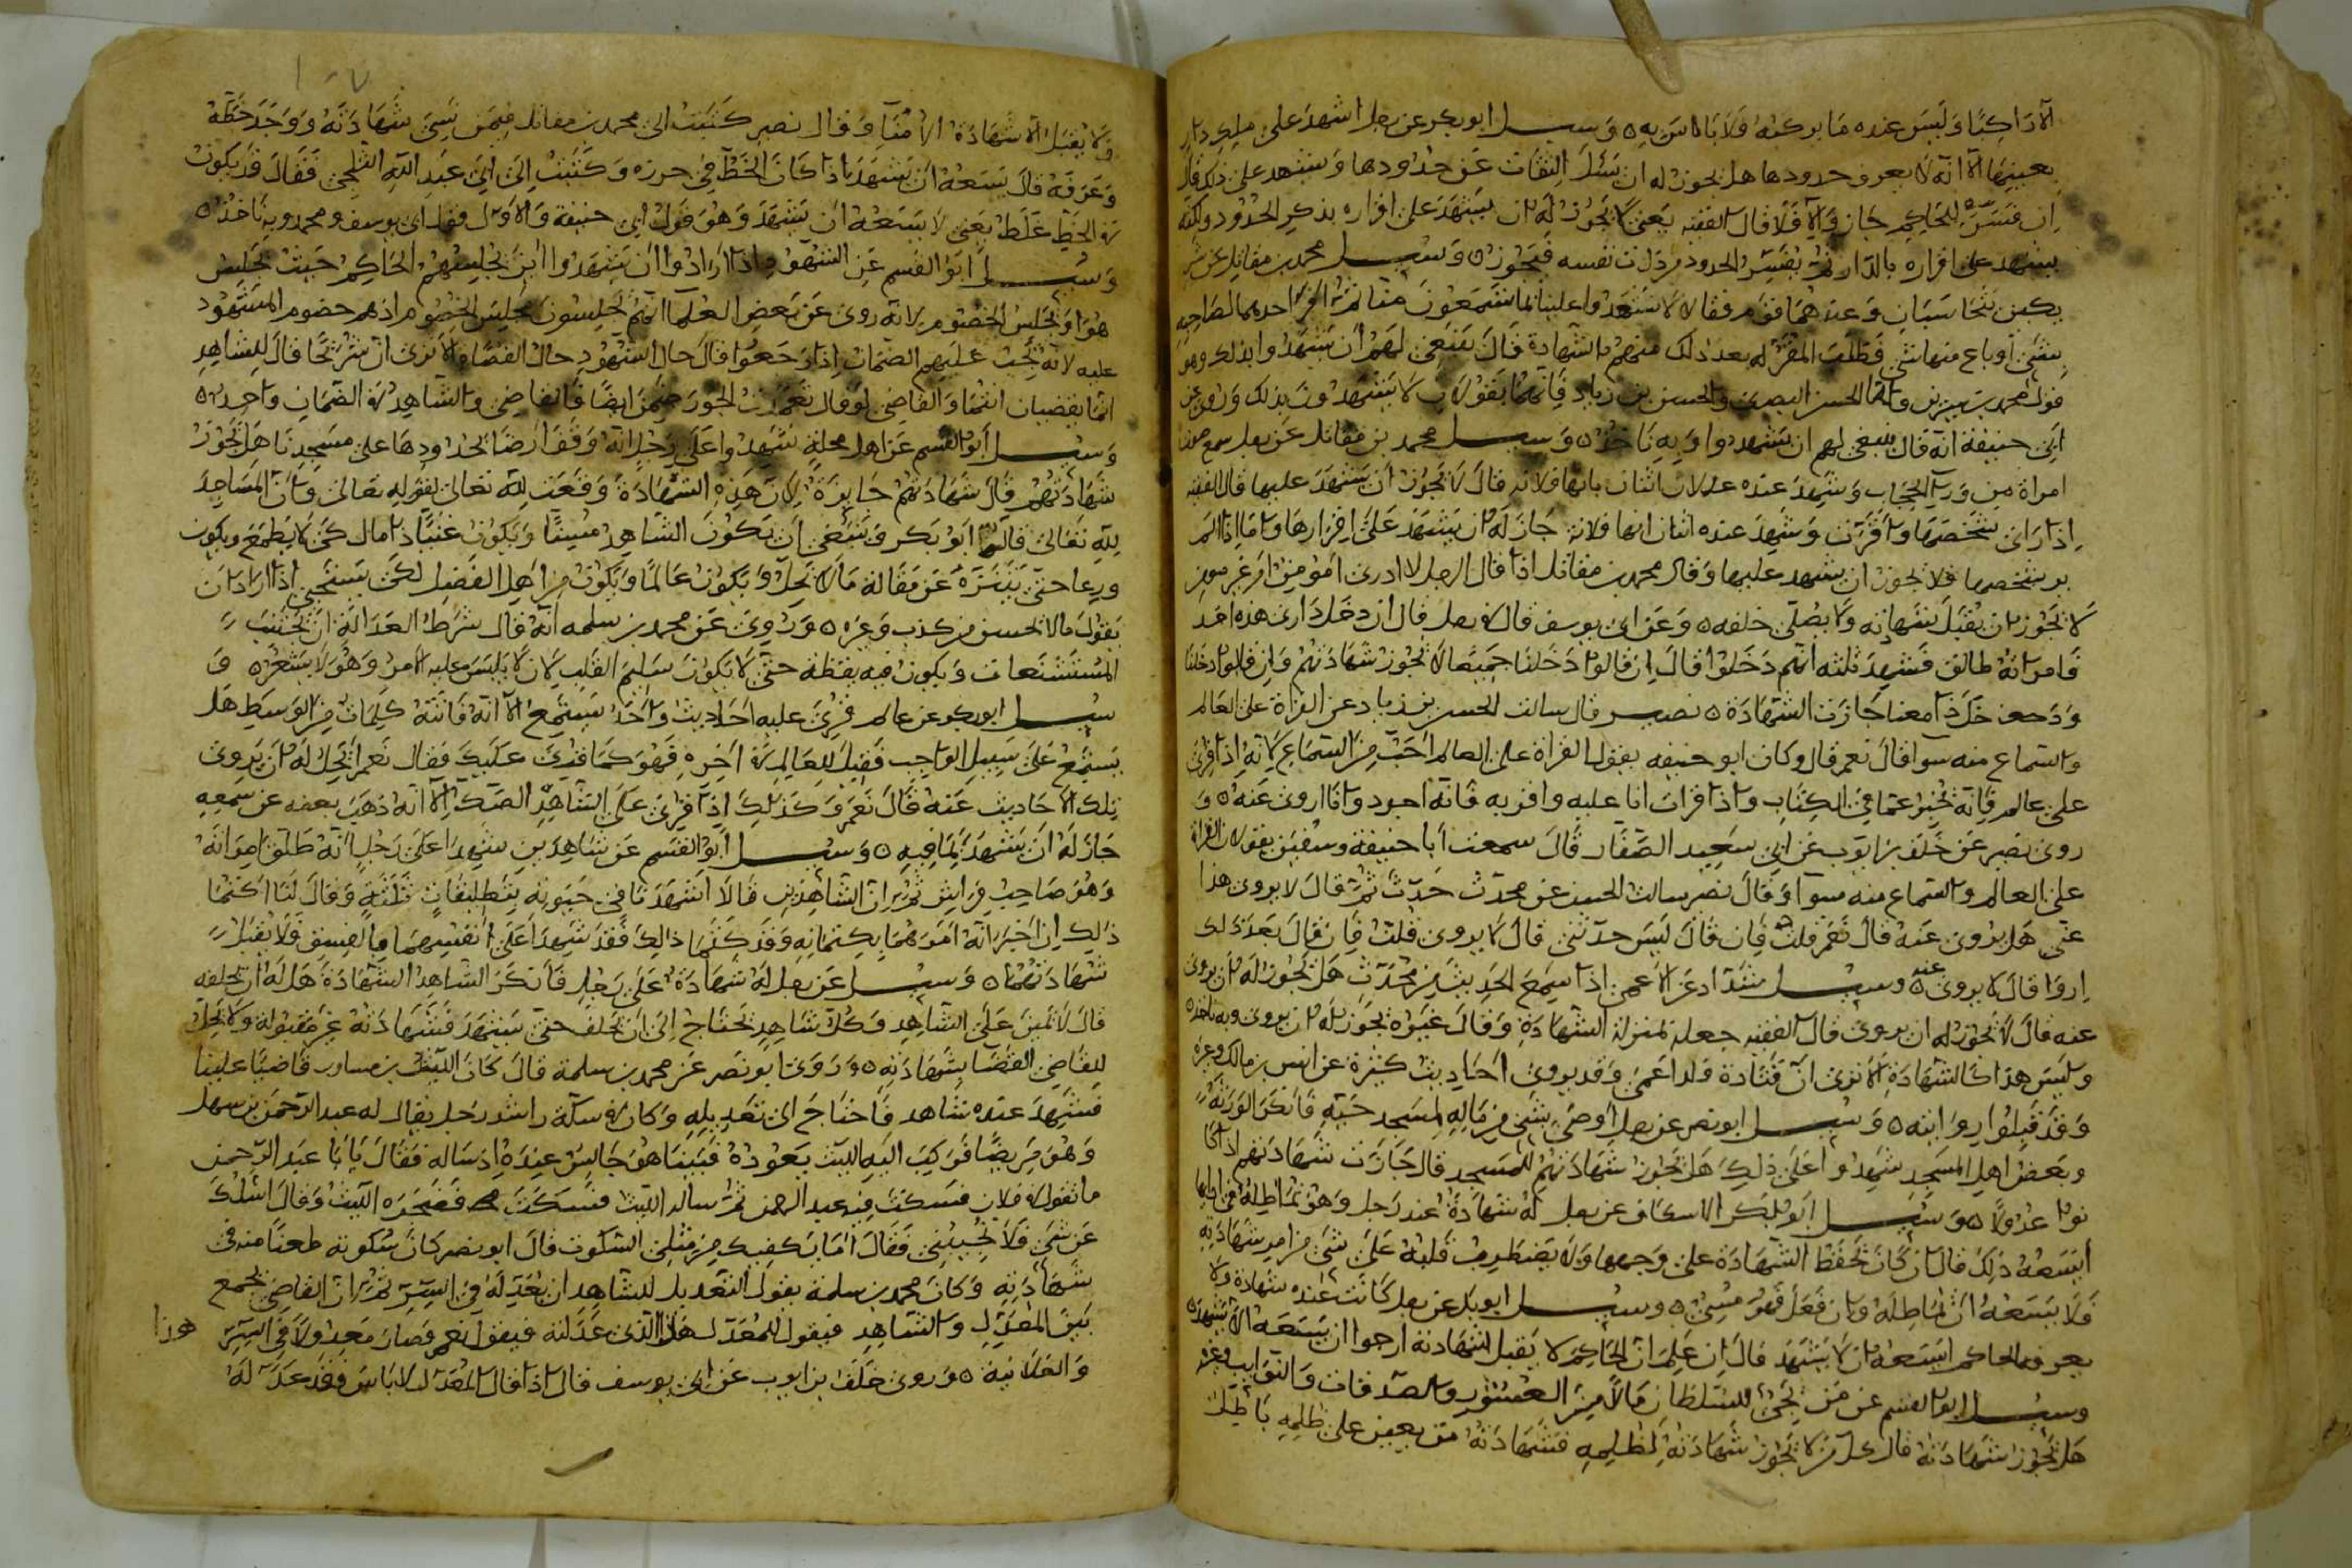 الا راكبا وليس عنده ما يركبه فلا باس به ٥ وسئل ابو بكر عن رجل اشهد على ملك دار
بعينها الا انه لا يعرف حدودها هل يجوز له ان يسئل الثقات عن حدودها ويشهد على ذلك قال
ان فسره للحاكم جاز والا فلا قال الفقيه يعني لا يجوز له ان يشهد على اقراره بذكر الحدود ولكنه
يشهد على اقراره بالدار ثم يفسر الحدود من ذات نفسه فيجوز ٥ وسئل محمد بن مقاتل عن
يتحاسبان وعندهما قوم فقالا لا تشهدوا علينا بما تسمعون منا ثم اقر احدهما لصاحبه
بشئ او باع منه شئ فطلب المقر له بعد ذلك منهم الشهادة قال ينبغي لهم ان يشهدوا بذلك وهو
قول محمد بن سيرين واما الحسن البصري والحسن بن زياد فانهما يقولان لا يشهدون بذلك وروي عن
ابي حنيفة انه قال ينبغي لهم ان يشهدوا وبه ناخذ ٥ وسئل محمد بن مقاتل عن رجل سمع صوت
امراة من وراء الحجاب وشهد عنده عدلان اثنان بانها فلانة قال لا يجوز ان يشهد عليها قال الفقيه
اذا راى شخصها واقرت وشهد عنده اثنان انها فلانة جاز له ان يشهد على اقرارها واما اذا لم
ير شخصها فلا يجوز ان يشهد عليها وقال محمد بن مقاتل اذا قال الرجل لا ادري امؤمن انا ام غير مومن
لا يجوز ان يقبل شهادته ولا يصلى خلفه ٥ وعن ابي يوسف قال في رجل قال ان دخل داري هذه احد
فامراته طالق فشهد ثلثه انهم دخلوا قال ان قالوا دخلنا جميعا لا يجوز شهادتهم وان قالوا دخلنا
ودخل ذا معنا جازت الشهادة ٥ نصير قال سالت الحسن بن زياد عن القراة على العالم
والسماع منه سوا قال نعم قال وكان ابو حنيفه يقول القراة على العالم احب من السماع لانه اذا قرئ
على عالم فانه يخبر عما في الكتاب واذا قرات انا عليه واقر به فانه اجود وانا اروي عنه ٥ و
روى نصير عن خلف بن ايوب عن ابي سعيد الصفار قال سمعت ابا حنيفة وسفين يقولان القراة
على العالم والسماع منه سوا وقال نصير سالت الحسن عن محدث حدث ثم قال لا يروى هذا
عني هل يروى عنه قال نعم قلت فان قال ليس حدثتني قال لا يروى قلت فان قال بعد ذلك
اروها قال لا يروى عنه ٥ وسئل شداد عن الاعمى اذا سمع الحديث من محدث هل يجوز له ان يروي
عنه قال لا يجوز له ان يروي قال الفقيه جعله بمنزلة الشهادة وقال غيره يجوز له ان يروي وبه ناخذ ٥
وليس هذا كالشهادة الا ترى ان قتادة ولد اعمى وقد يروى احاديث كثيرة عن انس بن مالك وغيره
وقد قبلوا روايته ٥ وسئل ابو نصر عن رجل اوصى بشئ من ماله لمسجد حيه فانكر الورثة
وبعض اهل المسجد شهدوا على ذلك هل يجوز شهادتهم للمسجد قال جازت شهادتهم اذا كا
نوا عدولا ٥ وسئل ابو بكر الاسكاف عن رجل له شهادة عند رجل وهو يماطله في ادايها
ايسعه ذلك قال ان كان يحفظ الشهادة على وجهها ولا يضطرب قلبه على شئ من امر شهادته
فلا يسعه ان يماطله وان فعل فهو مسئ ٥ وسئل ابو بكر عن رجل كانت عنده شهادة ولا
يعرفه الحاكم ايسعه ان لا يشهد قال ان علم ان الحاكم لا يقبل شهادته ارجوا ان يسعه الا يشهد ٥
وسئل ابو القسم عن من يجئ للسلطان مالا من العشور والصدقات والنوايب وغيره
هل يجوز شهادته قال كل من لا يجوز شهادته لظلمه فشهادته من يعين على ظلمه باطل
ولا يقبل الا شهادة الامنا وقال نصير كتبت الى محمد بن مقاتل فيمن نسي شهادته ووجد خطه
وعرفه قال يسعه ان يشهد اذا كان الخط في حرزه وكتبت الى ابي عبد الله الثلجي فقال قد يكون
في الخط غلط يعني لا يسعه ان يشهد وهو قول ابي حنيفة والاول قول ابي يوسف ومحمد وبه ناخذ ٥
وسئل ابو القسم عن الشهود اذا ارادوا ان يشهدوا اين يجلسهم الحاكم حيث يجلس
هو او يجلس الخصوم لانه روي عن بعض العلما انهم يجلسون مجلس الخصوم اذ هم خصوم المشهود
عليه لانه يجب عليهم الضمان اذا رجعوا قال حال الشهود حال القضا الا ترى ان شريحا قال للشاهد
انما يقضيان انتما والقاضي لو قال تعمدت الجور ضمن ايضا فالقاضي والشاهد في الضمان واحد ٥
وسئل ابو القسم عن اهل محلة شهدوا على رجل انه وقف ارضا بحدودها على مسجدنا هل تجوز
شهادتهم قال شهادتهم جايزة لان هذه الشهادة وقعت لله تعالى لقوله تعالى وان المساجد
لله تعالى قال ابو بكر وينبغي ان يكون الشاهد مسنا ويكون غنيا ذا مال كي لا يطمع ويكون
ورعا حتى يتنزه عن مقالة ما لا يحل ويكون عالما ويكون من اهل الفضل لكي يستحيي اذا اراد ان
يقول ما لا يحسن من كذب وغيره ٥ وروي عن محمد بن سلمه انه قال شرط العدالة ان يجتنب
المستشنعات ويكون فيه يقظه حتى لا يكون سليم القلب لان لا يلبس عليه الامر وهو لا يشعر ٥ و
سئل ابو بكر عن عالم قرئ عليه احاديث واحد يستمع الا انه فاتته كلمات من الوسط هل
يستمع على سبيل الواجب فقيل للعالم في اخره فهو كما قرئ عليك فقال نعم ايحل له ان يروي
تلك الاحاديث عنه قال نعم وكذلك اذا قرئ على الشاهد الصك الا انه ذهب بعضه عن سمعه
جاز له ان يشهد بما فيه ٥ وسئل ابو القسم عن شاهدين شهدا على رجل انه طلق امراته
وهو صاحب فراش ثم ان الشاهدين قالا اشهدنا في حيوته بتطليقات ثلثة وقال لنا اكتما
ذلك ان اخبر انه امرهما بكتمانه وقد كتما ذلك فقد شهدا على انفسهما بالفسق فلا يقبل
شهادتهما ٥ وسئل عن رجل له شهادة على رجل فانكر الشاهد الشهادة هل له ان يحلفه
قال لا يمين على الشاهد وكل شاهد يحتاج الى ان يحلف حتى يشهد فشهادته غير مقبولة ولا يحل
للقاضي القضا بشهادته ٥ وروى ابو نصر عن محمد بن سلمة قال كان الليث بن مساور قاضيا علينا
فشهد عنده شاهد فاحتاج الى تعديله وكان في سكة راشد رجل يقال له عبد الرحمن بن سهل
وهو مريضا فركب اليه الليث يعوده فبينا هو جالس عنده اذ ساله فقال يابا عبد الرحمن
ما تقول في فلان فسكت فيه عبد الرحمن ثم ساله الليث فسكت فضجره الليث وقال اسئلك
عن شئ فلا تجيبني فقال اما يكفيك من مثلي السكوت قال ابو نصر كان سكوته طعنا منه في
شهادته وكان محمد بن سلمة يقول التعديل للشاهد ان يعدله في السر ثم ان القاضي يجمع
بين المعدل والشاهد فيقول للمعدل هذا الذي عدلته فيقول نعم فصار معدولا في السر هذا
والعلانية ٥ وروى خلف بن ايوب عن ابي يوسف قال اذا قال المعدل لا باس فقد عدله